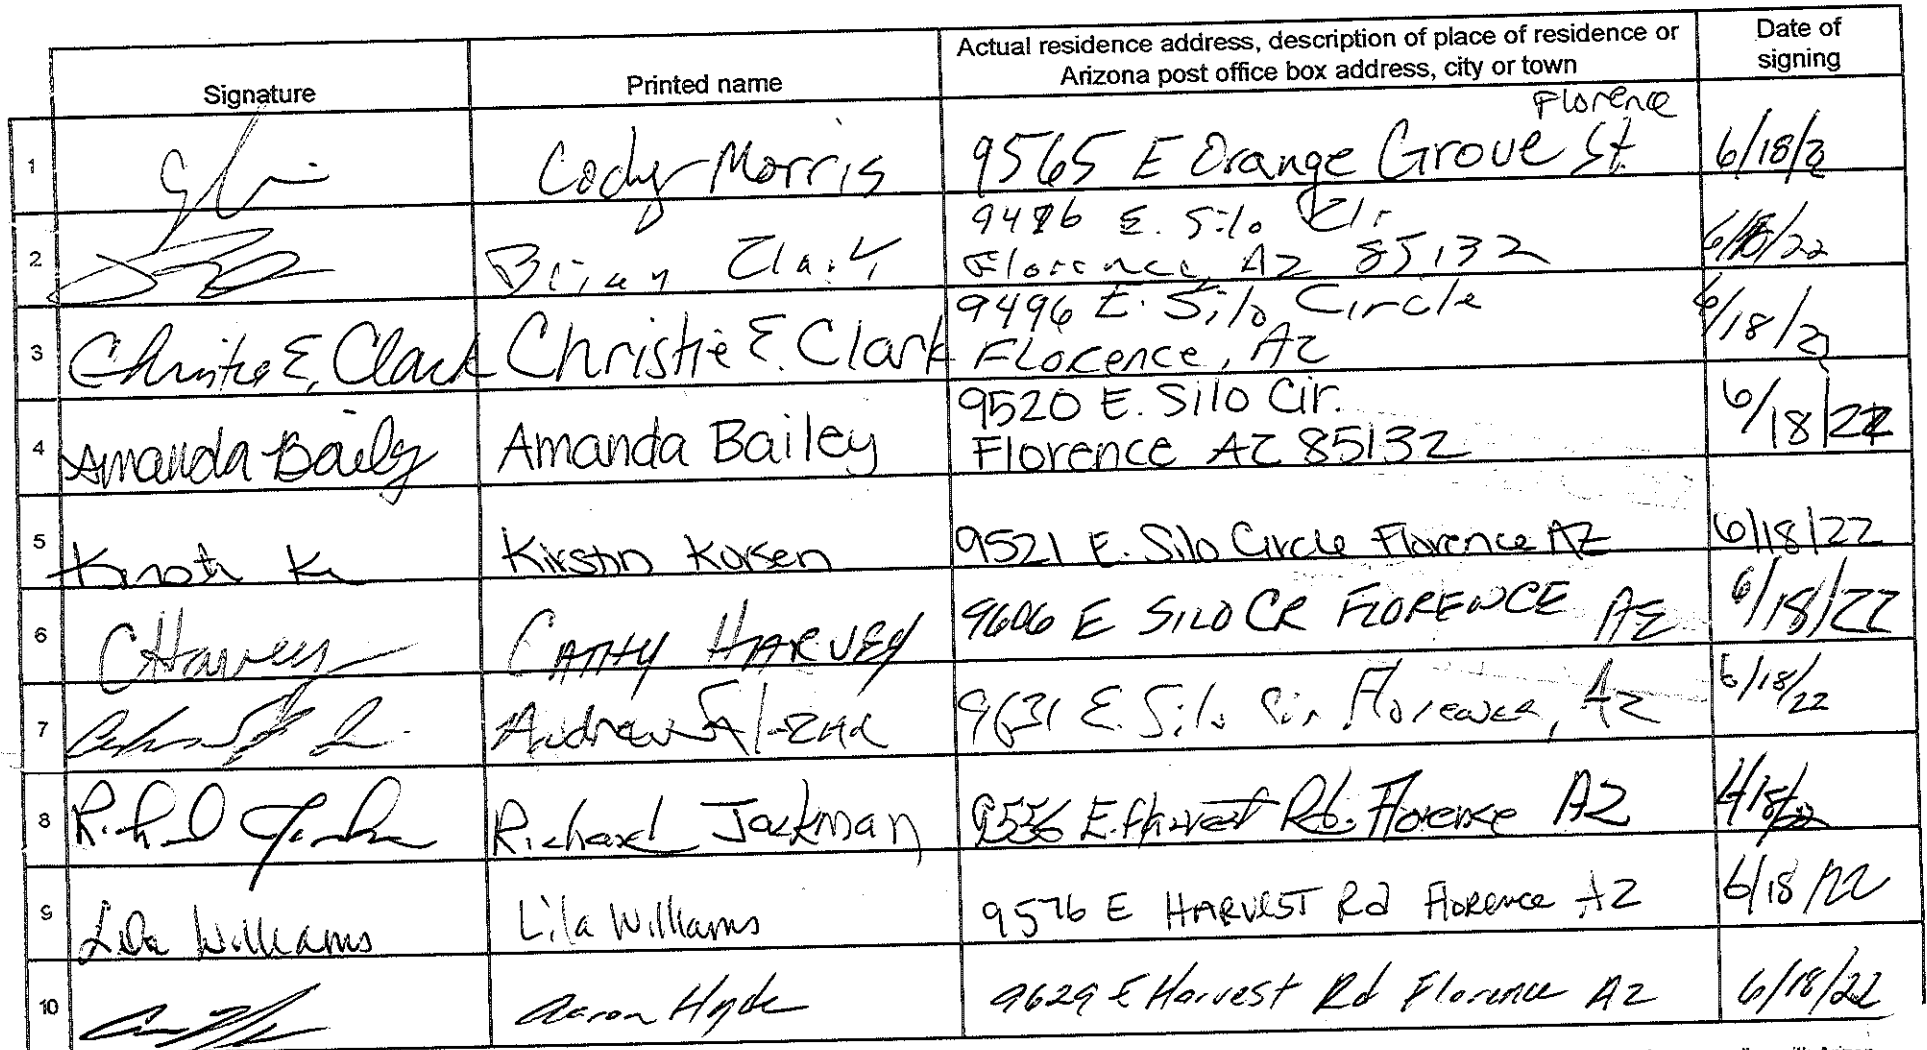 Signature Printed name Actual residence address, description of place of residence or Date of
Arizona post office box address, city or town signing
Florence
1 Cody Morris 9565 E Orange Grove St 6/18/2
2 Brian Clark 9496 E. Silo Cir
Florence, AZ 85132 6/18/22
3 Christie E. Clark Christie E. Clark 9496 E. Silo Circle 6/18/2
Florence, AZ
4 Amanda Baily Amanda Bailey 9520 E. Silo Cir. 6/18/22
Florence AZ 85132
5 Kirstin 9521 E. Silo Circle Florence AZ 6/18/22
6 CHarvey CATHY HARVEY 9606 E SILO CR FLORENCE AZ 6/18/22
7 Andrew 9631 E. Silo Cir Florence, AZ 6/18/22
8 Richard Jackman 9556 E. Harvest Rd. Florence AZ
9 Lila Williams Lila Williams 9576 E HARVEST Rd Florence AZ 6/18/22
10 Aaron Hyde 9629 E Harvest Rd Florence AZ 6/18/22